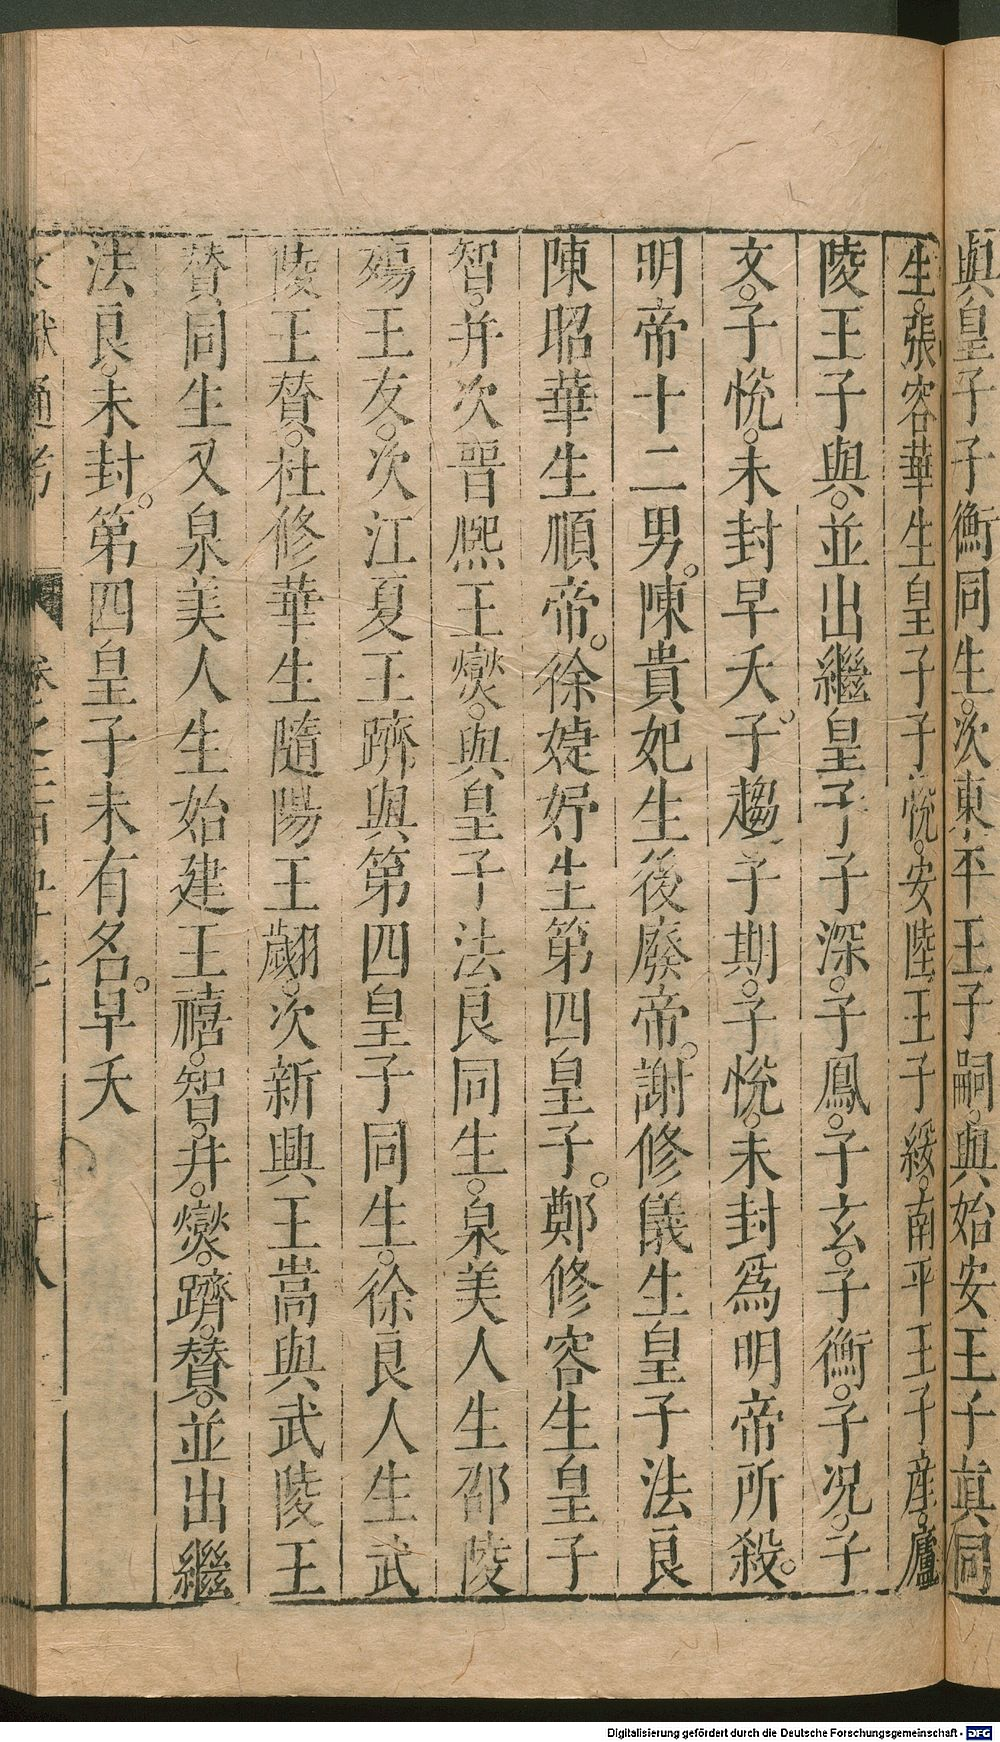 與皇子子衡同生。次東平王子嗣。與始安王子真同
生。張容華生皇子子悅。安陸王子綏。南平王子產。廬
陵王子與。並出繼皇子子深。子鳳。子玄。子衡。子况。子
文。子悅。未封早夭。子趨子期。子悅。未封爲明帝所殺。
明帝十二男。陳貴妃生後廢帝。謝修儀生皇子法良
陳昭華生順帝。徐婕妤生第四皇子。鄭修容生皇子
智。并次晉熈王燮。與皇子法良同生。泉美人生邵陵
殤王友。次江夏王躋與第四皇子同生。徐良人生武
陵王賛。杜修華生隨陽王翽。次新興王嵩與武陵王
賛同生又泉美人生始建王禧。智。井。燮。躋。賛。並出繼
法良。未封。第四皇子未有名。早夭
Digitalisierung gefördert durch die Deutsche Forschungsgemeinschaft - DFG